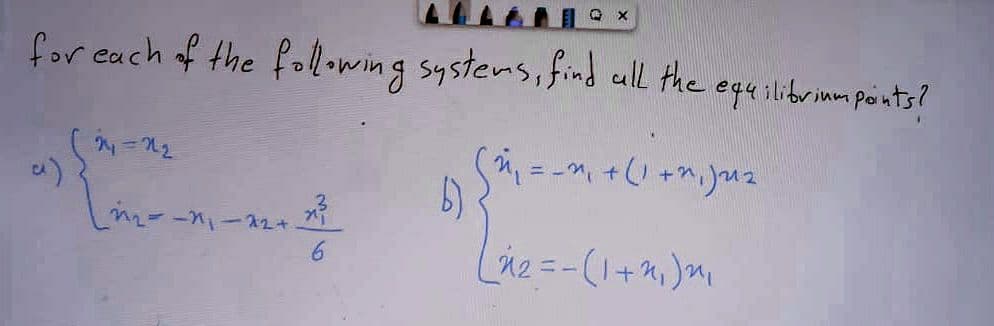 for each of the following systems, find all the equilibrium points?
a) { ẋ₁ = x₂
ẋ₂ = -x₁ - x₂ + x₁³/6
b) { ẋ₁ = -x₁ + (1 + x₁)x₂
ẋ₂ = -(1 + x₁)x₁